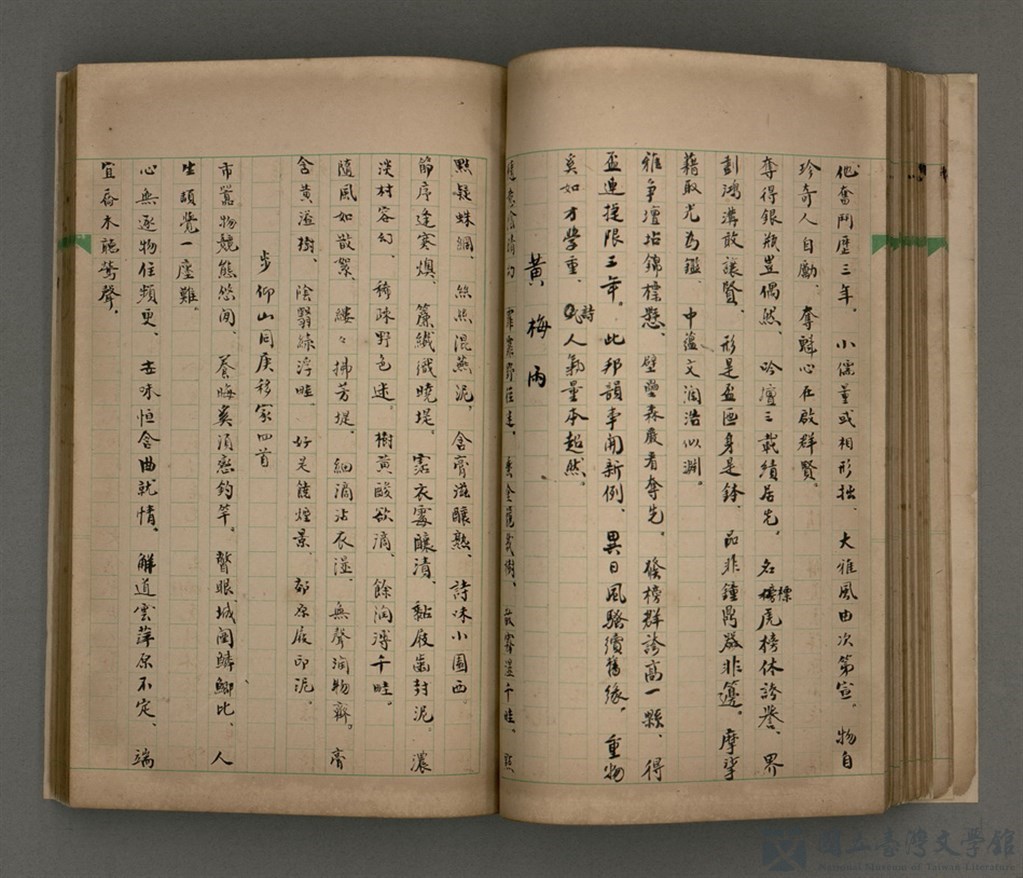 他奮鬥歷三年。小儒董或相形拙、大雅風由次第宣。物自
珍奇人自勵、奪魁心在啟群賢。
奪得銀瓶豈偶然、吟壇三載績居先。名標虎榜休誇譽、界
劃鴻溝敢讓賢。形是盃匜身是鉢、品非鐘鼎器非籩。摩挲
藉取光為鑑、中蘊文瀾浩似淵。
雅爭壇坫錦標懸、壁壘森嚴看奪先。發榜群誇高一縣、得
盃連捷限三年。此邦韻事開新例、異日風騷續舊緣。重物
奚如才學重、詩人氣量本超然。
黃梅雨
點疑蛛網、絲絲混燕泥、含膏滋釀熟、詩味小園西。
節序逢寒燠、簾纖織曉堤。霑衣霉釀漬、黏屐齒封泥。濃
淡村容幻、稀疎野色迷。樹黃酸欲滴、餘潤溥千畦。
隨風如散絮、縷々拂芳堤。細滴沾衣溼、無聲潤物齊。膏
含黃溢樹、陰翳綠浮畦。好是饒煙景、郊原屐印泥。
步仰山同庚移家四首
市囂物競熊悠閒、養晦奚須戀釣竿。瞥眼城闉鱗鯽比、人
生頭覺一廛難。
心無逐物任頻更、去味恒含曲就情。解道雲萍原不定、端
宜喬木聽鶯聲。
國立臺灣文學館
National Museum of Taiwan Literature